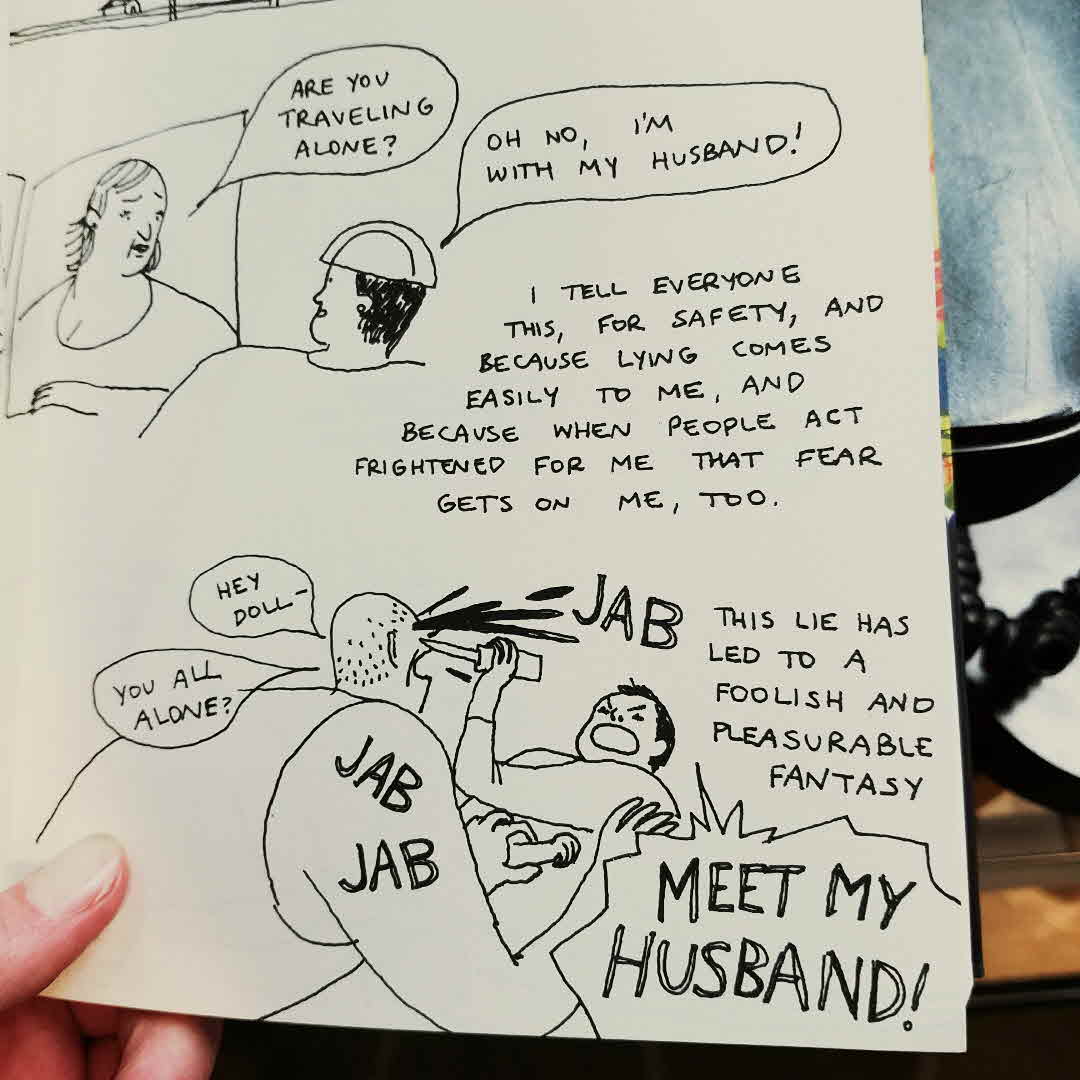 ARE YOU
TRAVELING
ALONE?
OH NO, I'M
WITH MY HUSBAND!
I TELL EVERYONE
THIS, FOR SAFETY, AND
BECAUSE LYING COMES
EASILY TO ME, AND
BECAUSE WHEN PEOPLE ACT
FRIGHTENED FOR ME THAT FEAR
GETS ON ME, TOO.
HEY
DOLL-
YOU ALL
ALONE?
JAB
JAB
JAB
THIS LIE HAS
LED TO A
FOOLISH AND
PLEASURABLE
FANTASY
MEET MY
HUSBAND!